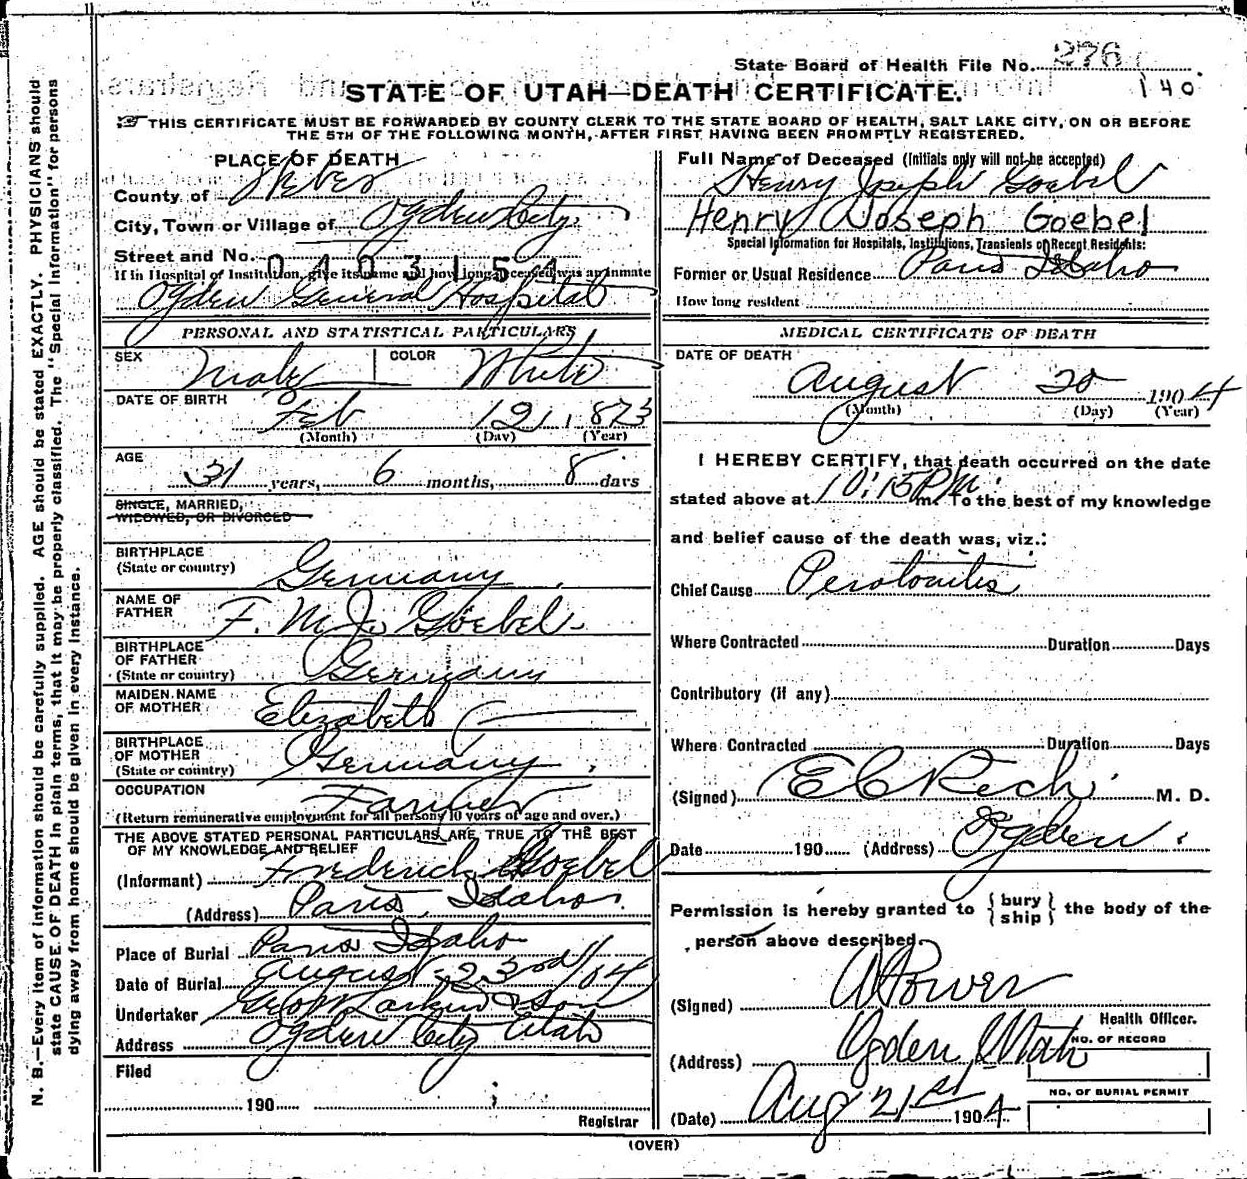 State Board of Health File No. 276
140
STATE OF UTAH—DEATH CERTIFICATE.
THIS CERTIFICATE MUST BE FORWARDED BY COUNTY CLERK TO THE STATE BOARD OF HEALTH, SALT LAKE CITY, ON OR BEFORE
THE 5TH OF THE FOLLOWING MONTH, AFTER FIRST HAVING BEEN PROMPTLY REGISTERED.
N. B.—Every item of information should be carefully supplied. AGE should be stated EXACTLY. PHYSICIANS should
state CAUSE OF DEATH in plain terms, that it may be properly classified. The "Special Information" for persons
dying away from home should be given in every instance.
PLACE OF DEATH
County of Weber
City, Town or Village of Ogden City
Street and No.
0403154
If in Hospital of Institution, give its name and how long deceased was an inmate
Ogden General Hospital
PERSONAL AND STATISTICAL PARTICULARS
SEX Male COLOR White
DATE OF BIRTH
Feb 12, 1873
(Month) (Day) (Year)
AGE
31 years, 6 months, 8 days
SINGLE, MARRIED,
WIDOWED, OR DIVORCED
BIRTHPLACE
(State or country) Germany
NAME OF
FATHER F. M. J. Goebel
BIRTHPLACE
OF FATHER
(State or country) Germany
MAIDEN NAME
OF MOTHER Elizabeth
BIRTHPLACE
OF MOTHER
(State or country) Germany
OCCUPATION
Farmer
(Return remunerative employment for all persons 10 years of age and over.)
THE ABOVE STATED PERSONAL PARTICULARS ARE TRUE TO THE BEST
OF MY KNOWLEDGE AND BELIEF
(Informant) Frederick Goebel
(Address) Paris, Idaho.
Place of Burial Paris Idaho
Date of Burial August 23rd/04
Undertaker Geo W Larkin & Son
Address Ogden City Utah
Filed
190
Registrar
Full Name of Deceased (Initials only will not be accepted)
Henry Joseph Goebel
Henry Joseph Goebel
Special Information for Hospitals, Institutions, Transients or Recent Residents:
Former or Usual Residence Paris Idaho
How long resident
MEDICAL CERTIFICATE OF DEATH
DATE OF DEATH
August 20 1904
(Month) (Day) (Year)
I HEREBY CERTIFY, that death occurred on the date
stated above at 10:15 P m. To the best of my knowledge
and belief cause of the death was, viz.:
Chief Cause Perotonitis
Where Contracted Duration Days
Contributory (if any)
Where Contracted Duration Days
(Signed) E C Rich M. D.
Date 190 (Address) Ogden
Permission is hereby granted to {bury
ship} the body of the
person above described.
(Signed) A Power
Health Officer.
(Address) Ogden Utah
NO. OF RECORD
NO. OF BURIAL PERMIT
(Date) Aug 21st 1904
(OVER)